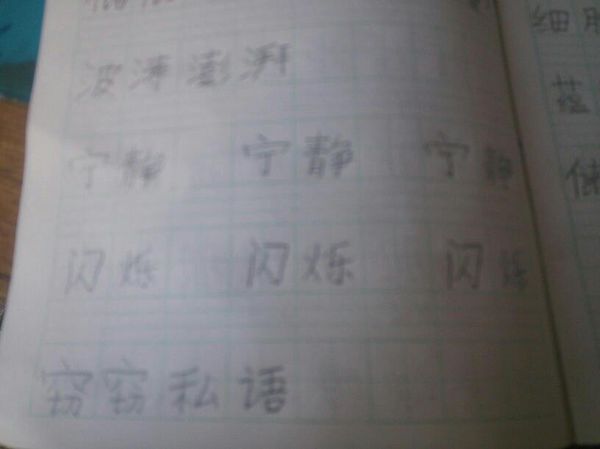 波涛澎湃
宁静 宁静 宁静
闪烁 闪烁 闪烁
窃窃私语
细
蕴
储